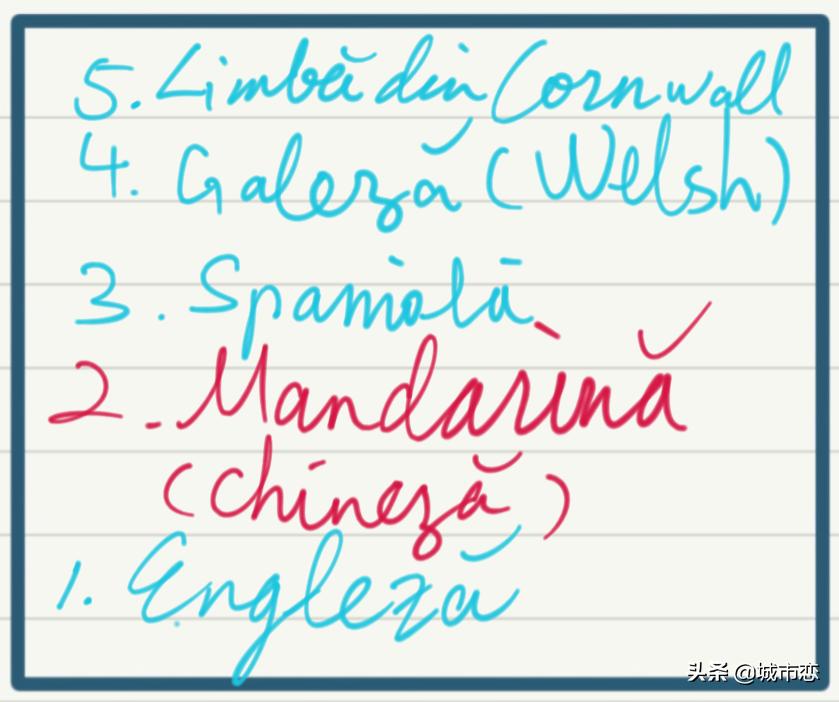 5. Limbă din Cornwall
4. Galeză (Welsh)
3. Spaniolă
2. Mandarină
(Chineză)
1. Engleză
头条 @城市恋